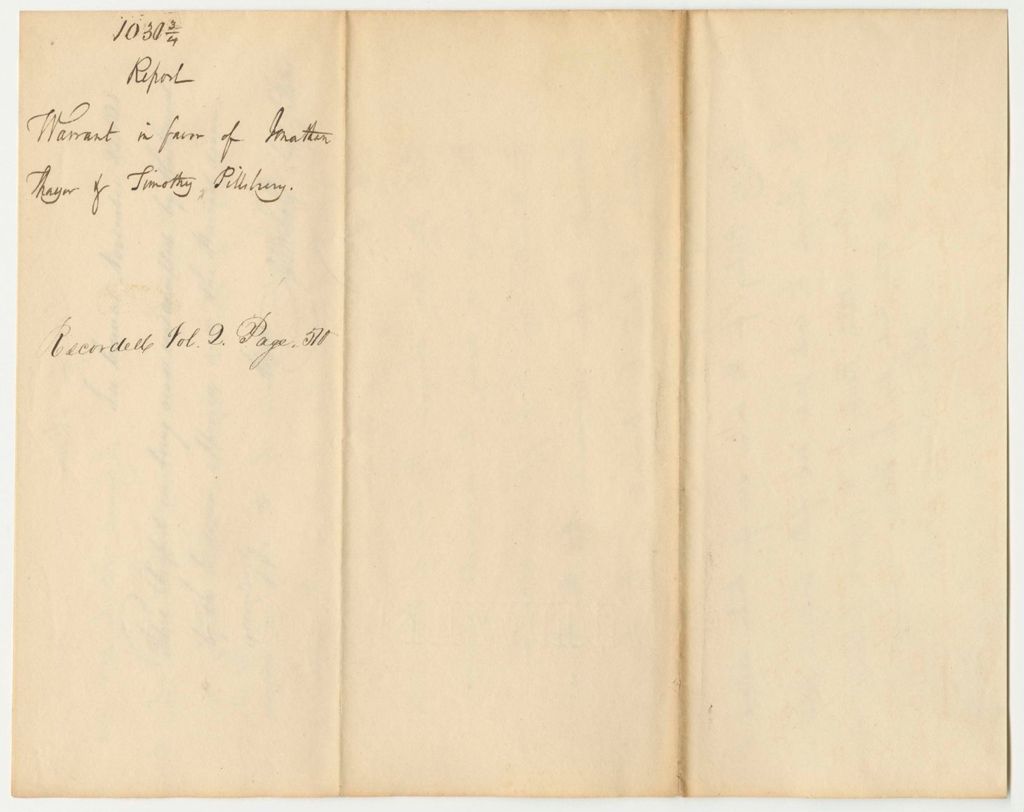 1030 3/4
Report
Warrant in favor of Jonathan
Thayer & Timothy Pillsbury.
Recorded Vol. 2. Page.